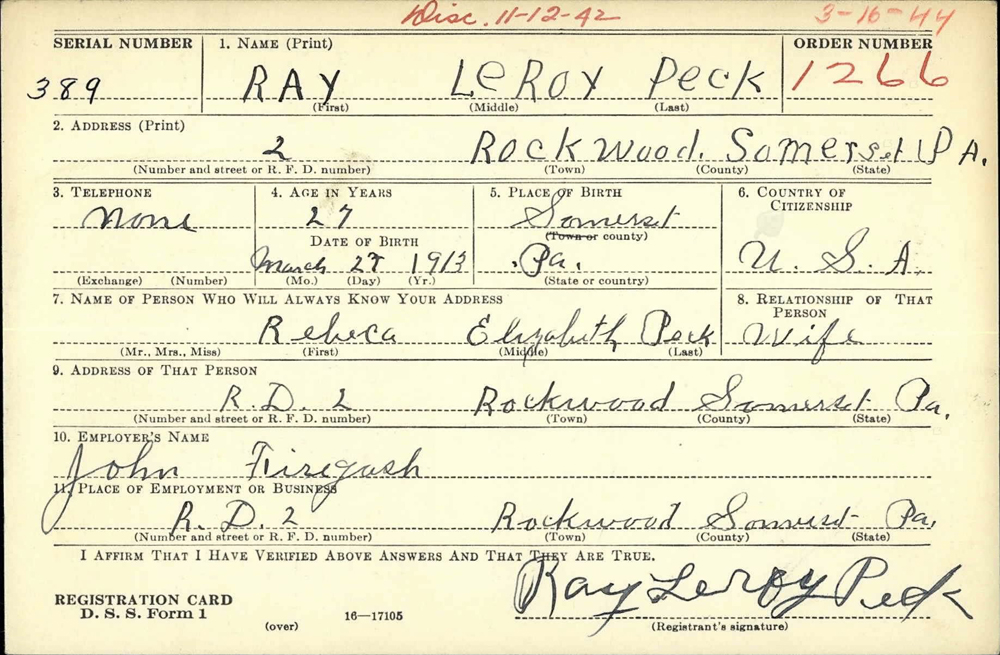 Disc. 11-12-42 3-16-44
SERIAL NUMBER 1. NAME (Print) ORDER NUMBER
389 RAY LeRoy Peck 1266
(First) (Middle) (Last)
2. ADDRESS (Print)
2 Rockwood. Somerset PA.
(Number and street or R. F. D. number) (Town) (County) (State)
3. TELEPHONE 4. AGE IN YEARS 5. PLACE OF BIRTH 6. COUNTRY OF CITIZENSHIP
None 27 Somerset
DATE OF BIRTH (Town or county)
March 27 1913 Pa. U. S. A.
(Exchange) (Number) (Mo.) (Day) (Yr.) (State or country)
7. NAME OF PERSON WHO WILL ALWAYS KNOW YOUR ADDRESS 8. RELATIONSHIP OF THAT PERSON
Rebeca Elizabeth Peck Wife
(Mr., Mrs., Miss) (First) (Middle) (Last)
9. ADDRESS OF THAT PERSON
R.D. 2 Rockwood Somerset Pa.
(Number and street or R. F. D. number) (Town) (County) (State)
10. EMPLOYER'S NAME
John
11. PLACE OF EMPLOYMENT OR BUSINESS
R. D. 2 Rockwood Somerset Pa.
(Number and street or R. F. D. number) (Town) (County) (State)
I AFFIRM THAT I HAVE VERIFIED ABOVE ANSWERS AND THAT THEY ARE TRUE.
Ray Leroy Peck
REGISTRATION CARD
D. S. S. Form 1 16—17105
(over) (Registrant's signature)